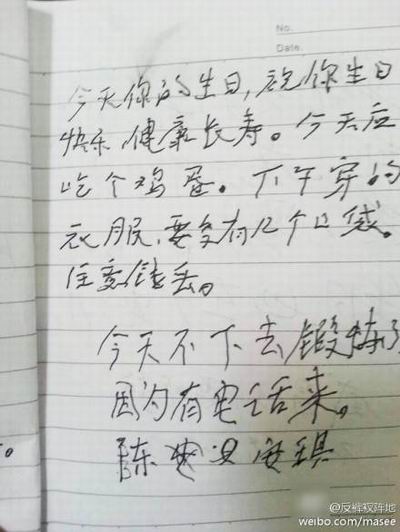 No.
Date.
今天你的生日，祝你生日
快乐，健康长寿。今天应
吃个鸡蛋。下午穿的
衣服，要多有几个口袋。
钱丢。
今天不下去锻炼了
因为有电话来。
陈 安琪
@反裤衩阵地
weibo.com/masee